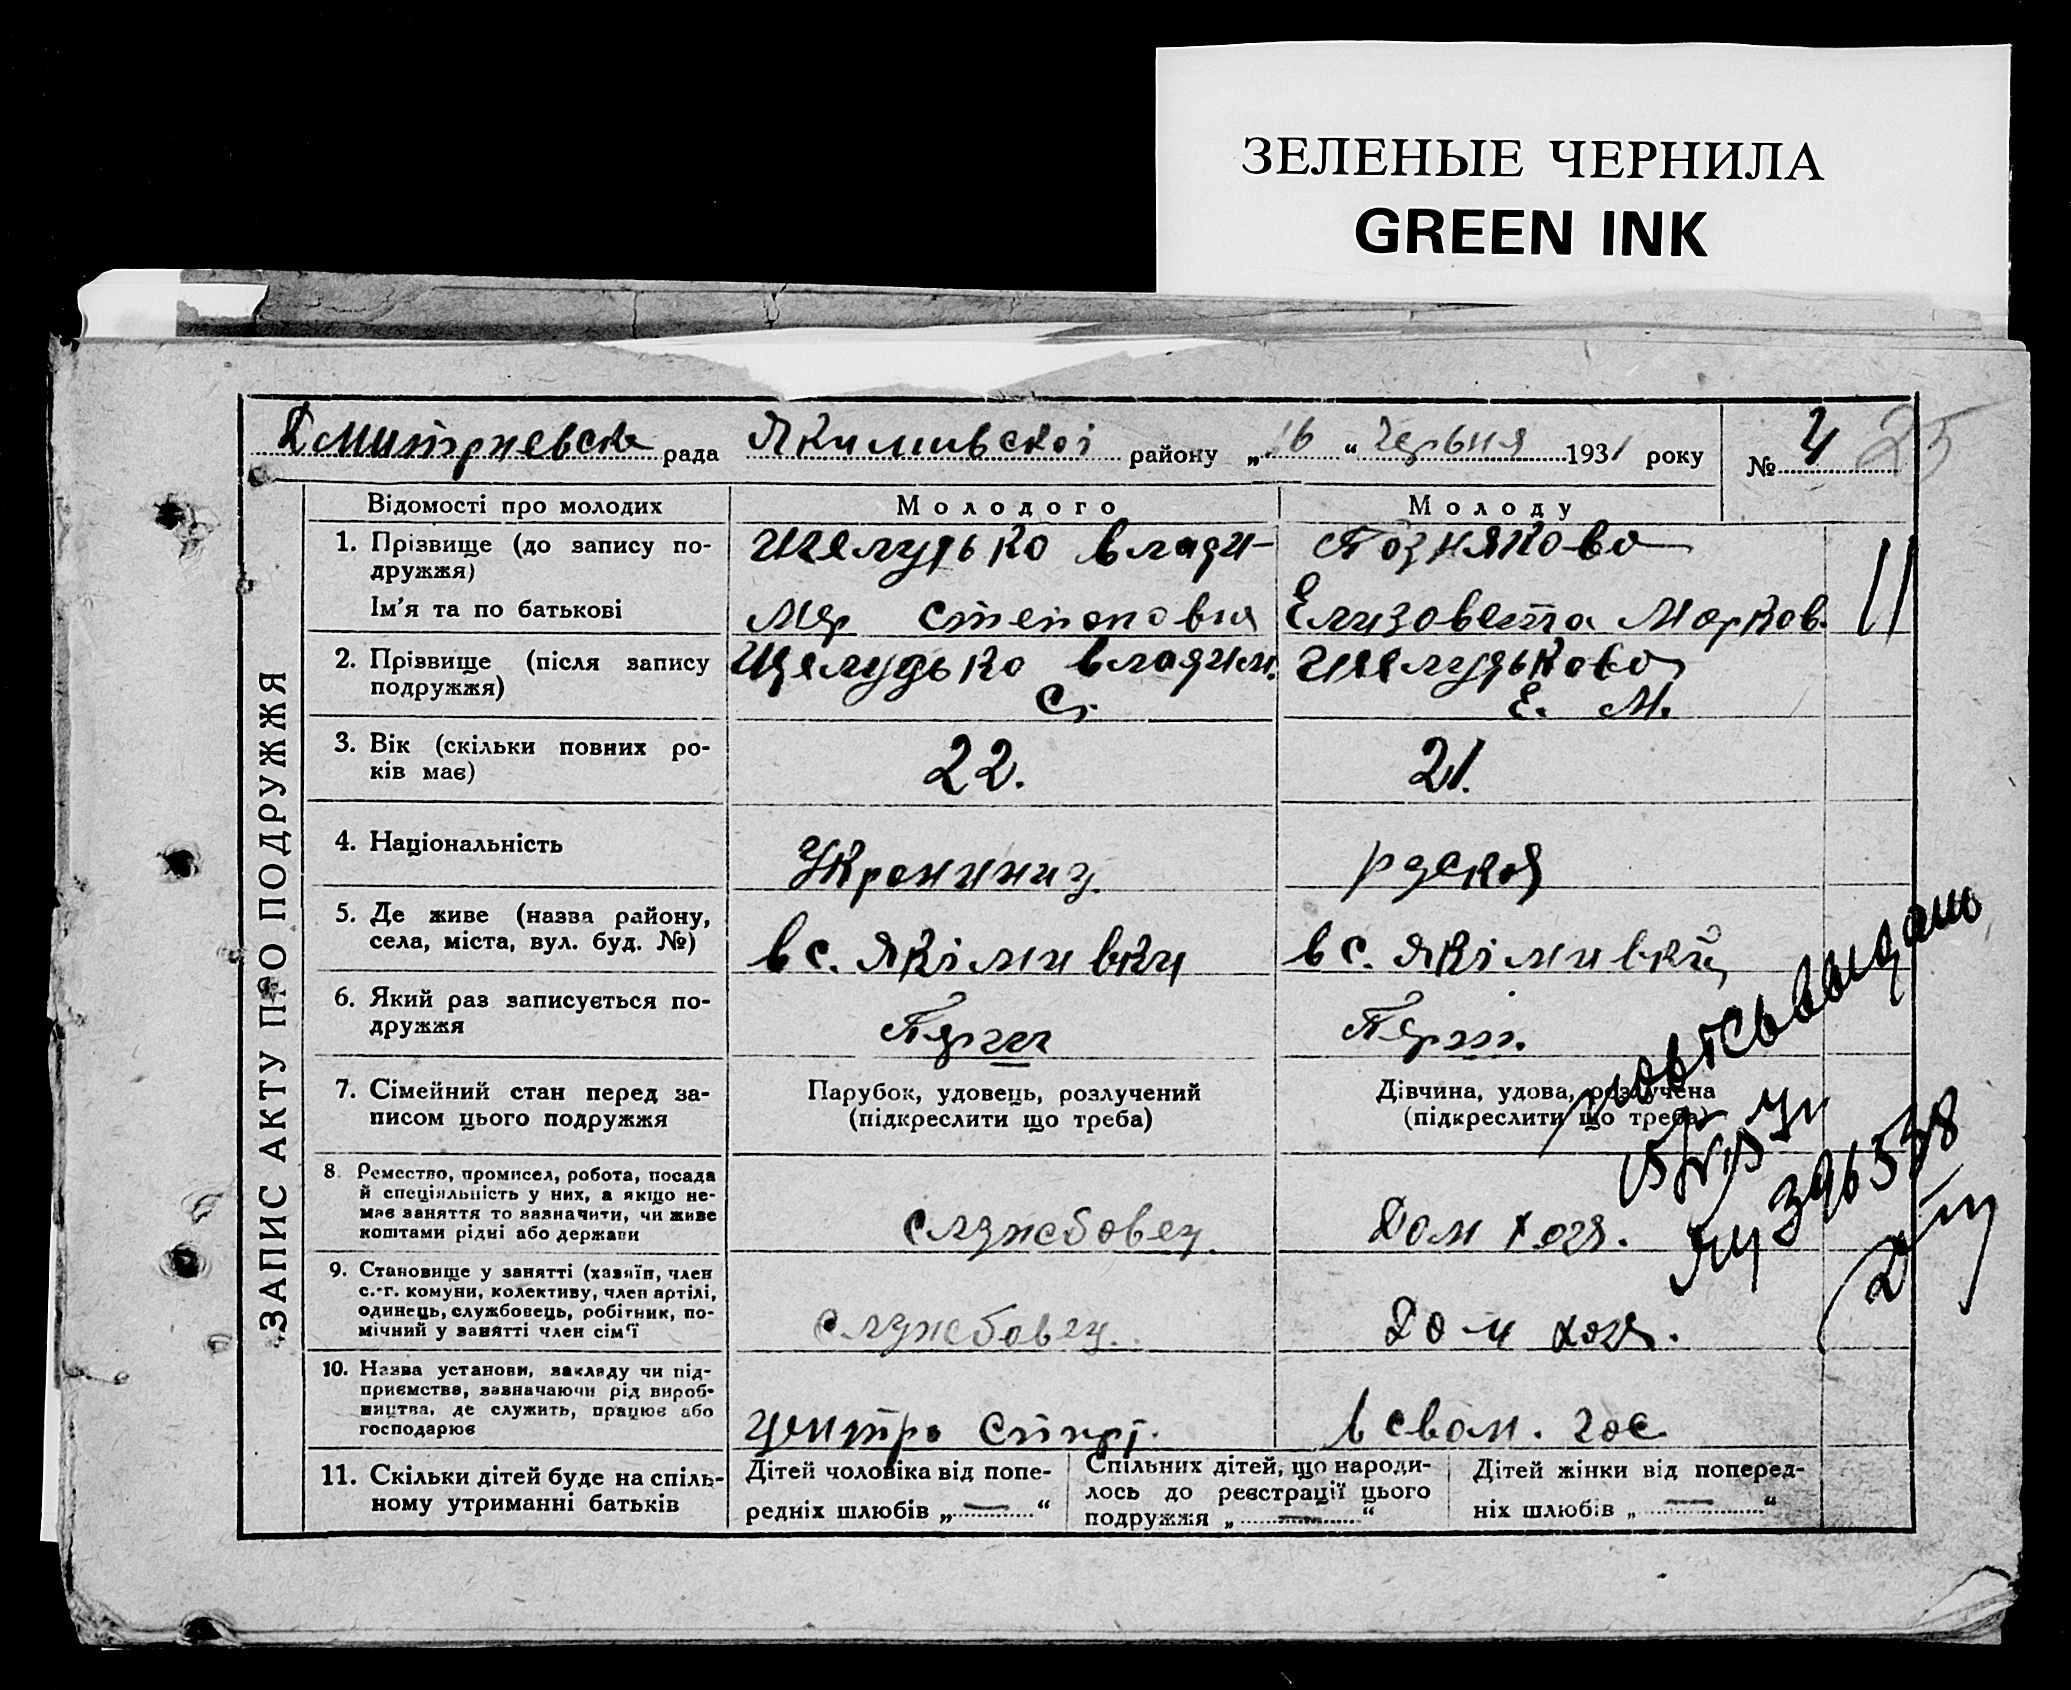 ЗЕЛЕНЫЕ ЧЕРНИЛА
GREEN INK
Дмитриевска рада Якимивскоі району „16“ Червня 1931 року № 4 25
ЗАПИС АКТУ ПРО ПОДРУЖЖЯ
Відомості про молодих Молодого Молоду
1. Прізвище (до запису по-
дружжя)
Ім'я та по батькові
Шелудько Влади-
мер Степанович
Познякова
Елизовета Марков.
11
2. Прізвище (після запису
подружжя)
Шелудько Владим.
С.
Шелудькова
Е. М.
3. Вік (скільки повних ро-
ків має)
22.
21.
4. Національність
Украиниц
руская
5. Де живе (назва району,
села, міста, вул. буд. №)
в с. Якімивки
в с. Якімивкй
6. Який раз записується по-
дружжя
Перш
Перш.
7. Сімейний стан перед за-
писом цього подружжя
Парубок, удовець, розлучений
(підкреслити що треба)
Дівчина, удова, розлучена
(підкреслити що треба)
8. Ремество, промисел, робота, посада
й спеціяльність у них, а якщо не-
має заняття то зазначити, чи живе
коштами рідні або держави
служебовец.
Дом хозя.
9. Становище у занятті (хазяїн, член
с.-г. комуни, колективу, член артілі,
одинець, службовець, робітник, по-
мічний у занятті член сім'ї
служебовец.
Дом хозя.
10. Назва установи, закладу чи під-
приємства, зазначаючи рід вироб-
ництва, де служить, працює або
господарює
центро спирт.
в свом. гос
11. Скільки дітей буде на спіль-
ному утриманні батьків
Дітей чоловіка від попе-
редніх шлюбів „ — “
Спільних дітей, що народи-
лось до реєстрації цього
подружжя „ — “
Дітей жінки від поперед-
ніх шлюбів „ — “
396538